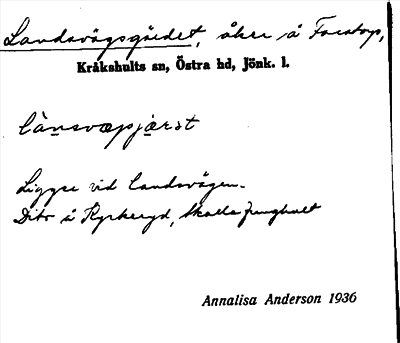 Landsvägsgärdet, åker å Farstorp,
Kråkshults sn, Östra hd, Jönk. l.
lànsvæpjæ̀rst
Ligger vid landsvägen.
Dito å Kyrkeryd, Skalla
Annalisa Anderson 1936